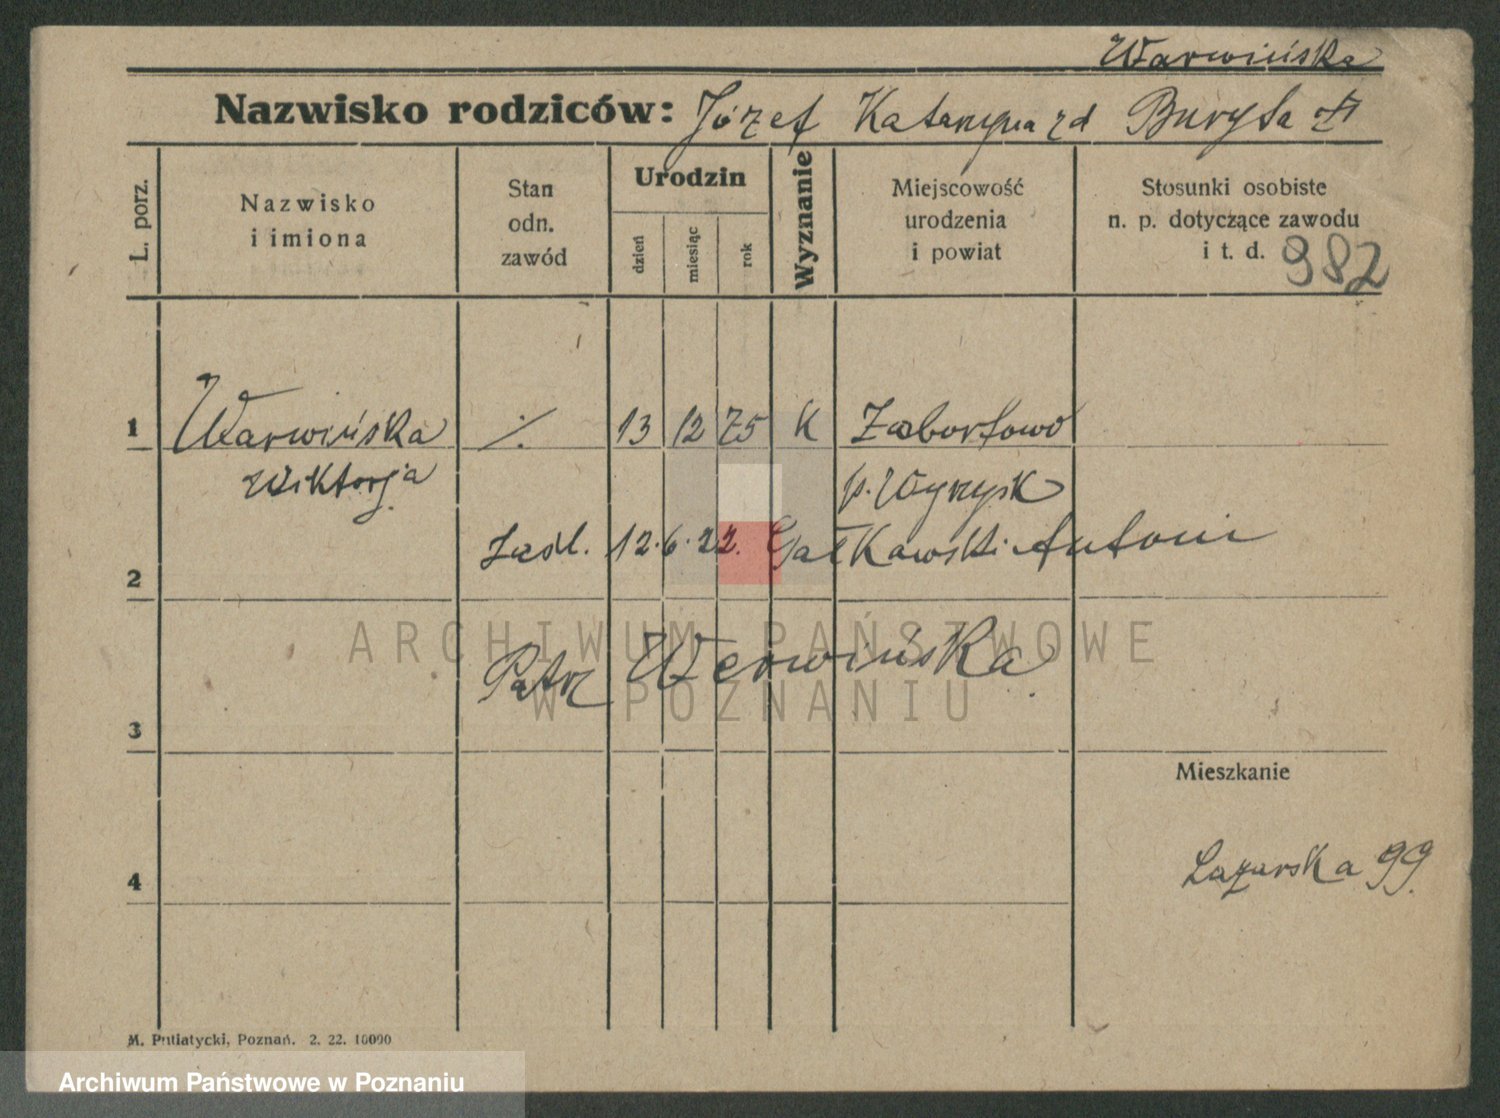 Warwińska
Nazwisko rodziców: Józef Katarzyna zd Buryta
L. porz.
Nazwisko i imiona
Stan odn. zawód
Urodzin
dzień
miesiąc
rok
Wyznanie
Miejscowość urodzenia i powiat
Stosunki osobiste n. p. dotyczące zawodu i t. d.
982
1 Warwińska ·/. 13 12 75 K Zabortowo
Wiktorja p. Wyrzysk
2 Zaśl. 12.6.22. Gałkowski Antoni
ARCHIWUM PAŃSTWOWE
W POZNANIU
3 Patrz Werwińska
Mieszkanie
4 Lazarska 99.
M. Putiatycki, Poznań. 2. 22. 10000
Archiwum Państwowe w Poznaniu